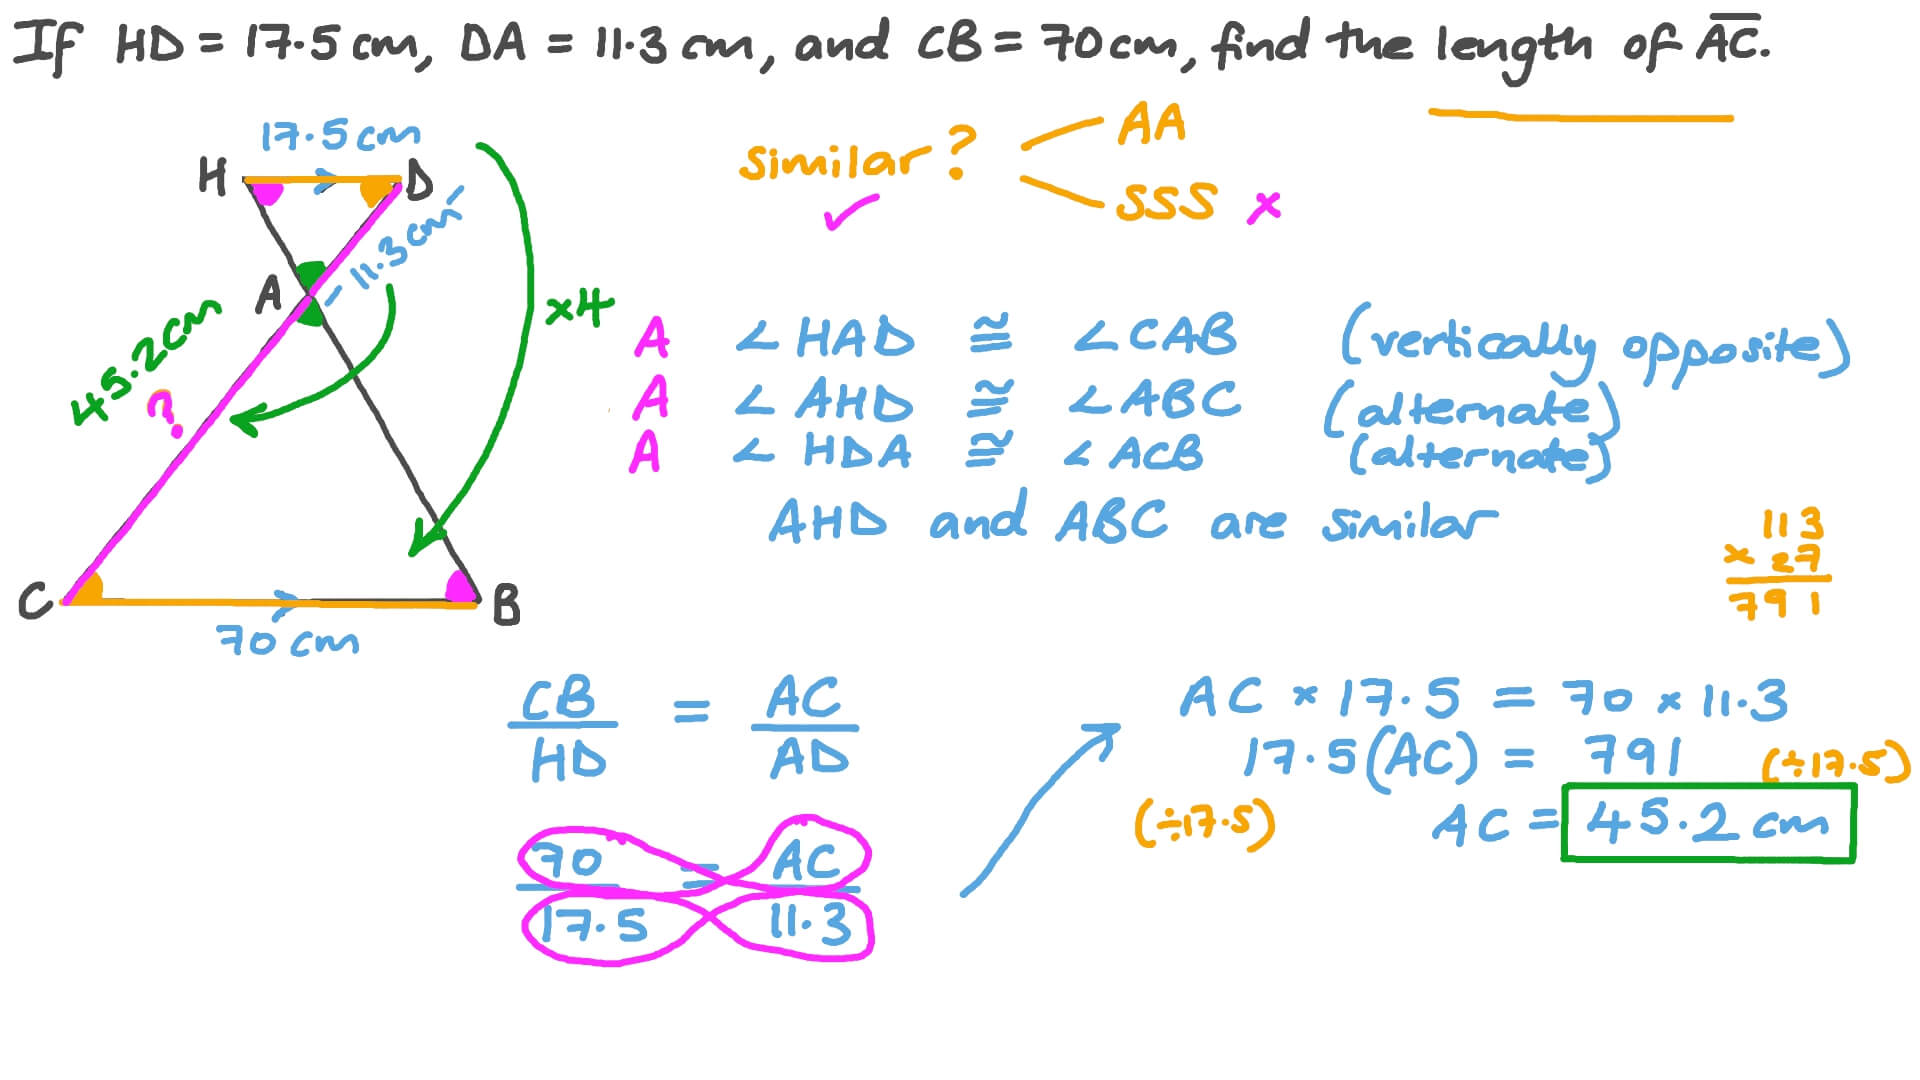 If HD = 17.5 cm, DA = 11.3 cm, and CB = 70 cm, find the length of A̅C̅.
17.5 cm
H
D
11.3 cm
A
45.2 cm
?
x4
C
B
70 cm
similar? AA
SSS x
✓
A ∠HAD ≅ ∠CAB (vertically opposite)
A ∠AHD ≅ ∠ABC (alternate)
A ∠HDA ≅ ∠ACB (alternate)
AHD and ABC are similar
113
x 27
791
CB/HD = AC/AD
70/17.5 = AC/11.3
AC × 17.5 = 70 × 11.3
17.5(AC) = 791 (÷17.5)
(÷17.5) AC = 45.2 cm